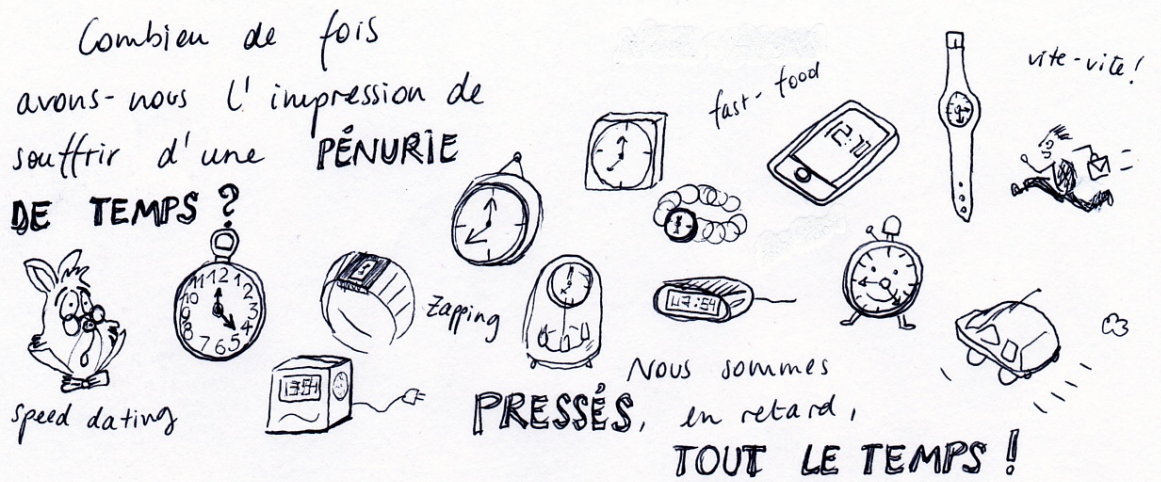 Combien de fois
avons-nous l'impression de
souffrir d'une PÉNURIE
DE TEMPS ?
fast-food
vite-vite !
12:70
11 12 1
10 2
9 3
8 4
7 6 5
zapping
13:54
speed dating
Nous sommes
PRESSÉS, en retard,
TOUT LE TEMPS !